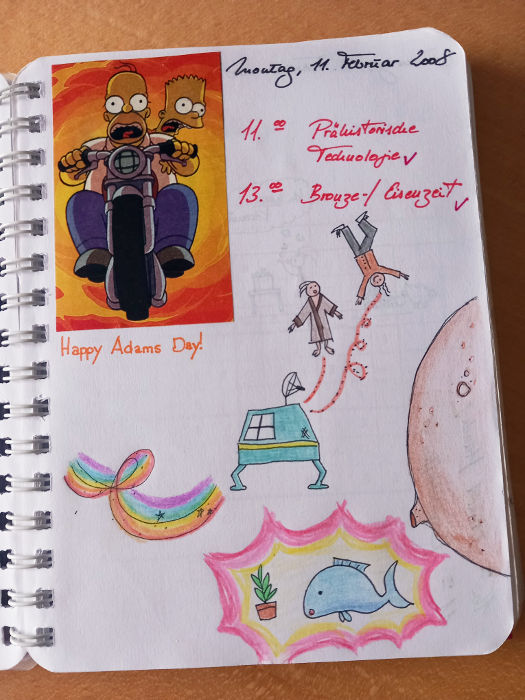 Montag, 11. Februar 2008
11.00 Prähistorische
Technologie
13.00 Bronze-/Eisenzeit
Happy Adams Day!